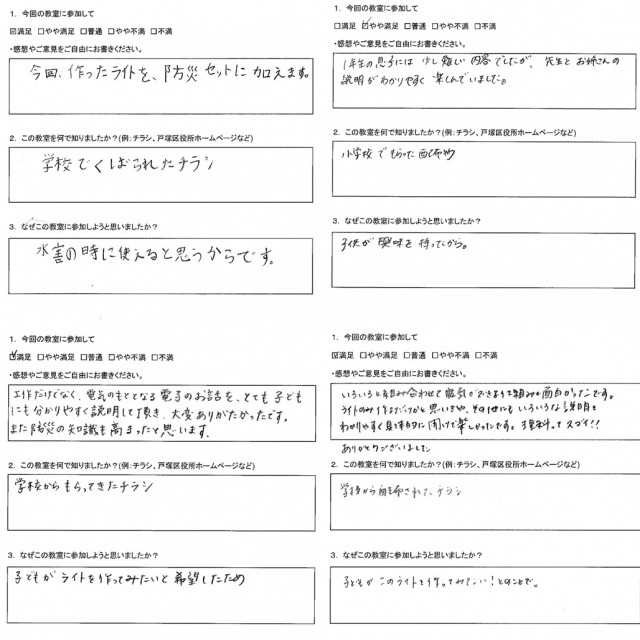 1. 今回の教室に参加して
☑満足 □やや満足 □普通 □やや不満 □不満
・感想やご意見をご自由にお書きください。
今回、作ったライトを、防災セットに加えます。
2. この教室を何で知りましたか？(例：チラシ、戸塚区役所ホームページなど)
学校でくばられたチラシ
3. なぜこの教室に参加しようと思いましたか？
水害の時に使えると思うからです。
1. 今回の教室に参加して
□満足 ☑やや満足 □普通 □やや不満 □不満
・感想やご意見をご自由にお書きください。
1年生の息子には少し難しい内容でしたが、先生とお姉さんの
説明がわかりやすく楽しんでいました。
2. この教室を何で知りましたか？(例：チラシ、戸塚区役所ホームページなど)
小学校でもらった配布物
3. なぜこの教室に参加しようと思いましたか？
子供が興味を持ってたから。
1. 今回の教室に参加して
☑満足 □やや満足 □普通 □やや不満 □不満
・感想やご意見をご自由にお書きください。
工作だけでなく、電気のもととなる電子のお話を、とても子ども
にも分かりやすく説明して頂き、大変ありがたかったです。
また防災の知識も高まったと思います。
2. この教室を何で知りましたか？(例：チラシ、戸塚区役所ホームページなど)
学校からもらってきたチラシ
3. なぜこの教室に参加しようと思いましたか？
子どもがライトを作ってみたいと希望したため
1. 今回の教室に参加して
☑満足 □やや満足 □普通 □やや不満 □不満
・感想やご意見をご自由にお書きください。
いろいろと組み合わせて電気がおきる
ライトのみ作るだけかと思いきや、その他にもいろいろな説明を
わかりやすく具体的に聞けて楽しかったです。理科ってスゴイ!!
ありがとうございました
2. この教室を何で知りましたか？(例：チラシ、戸塚区役所ホームページなど)
学校から配布されたチラシ
3. なぜこの教室に参加しようと思いましたか？
子どもがこのライトを作ってみたい！とのことで。